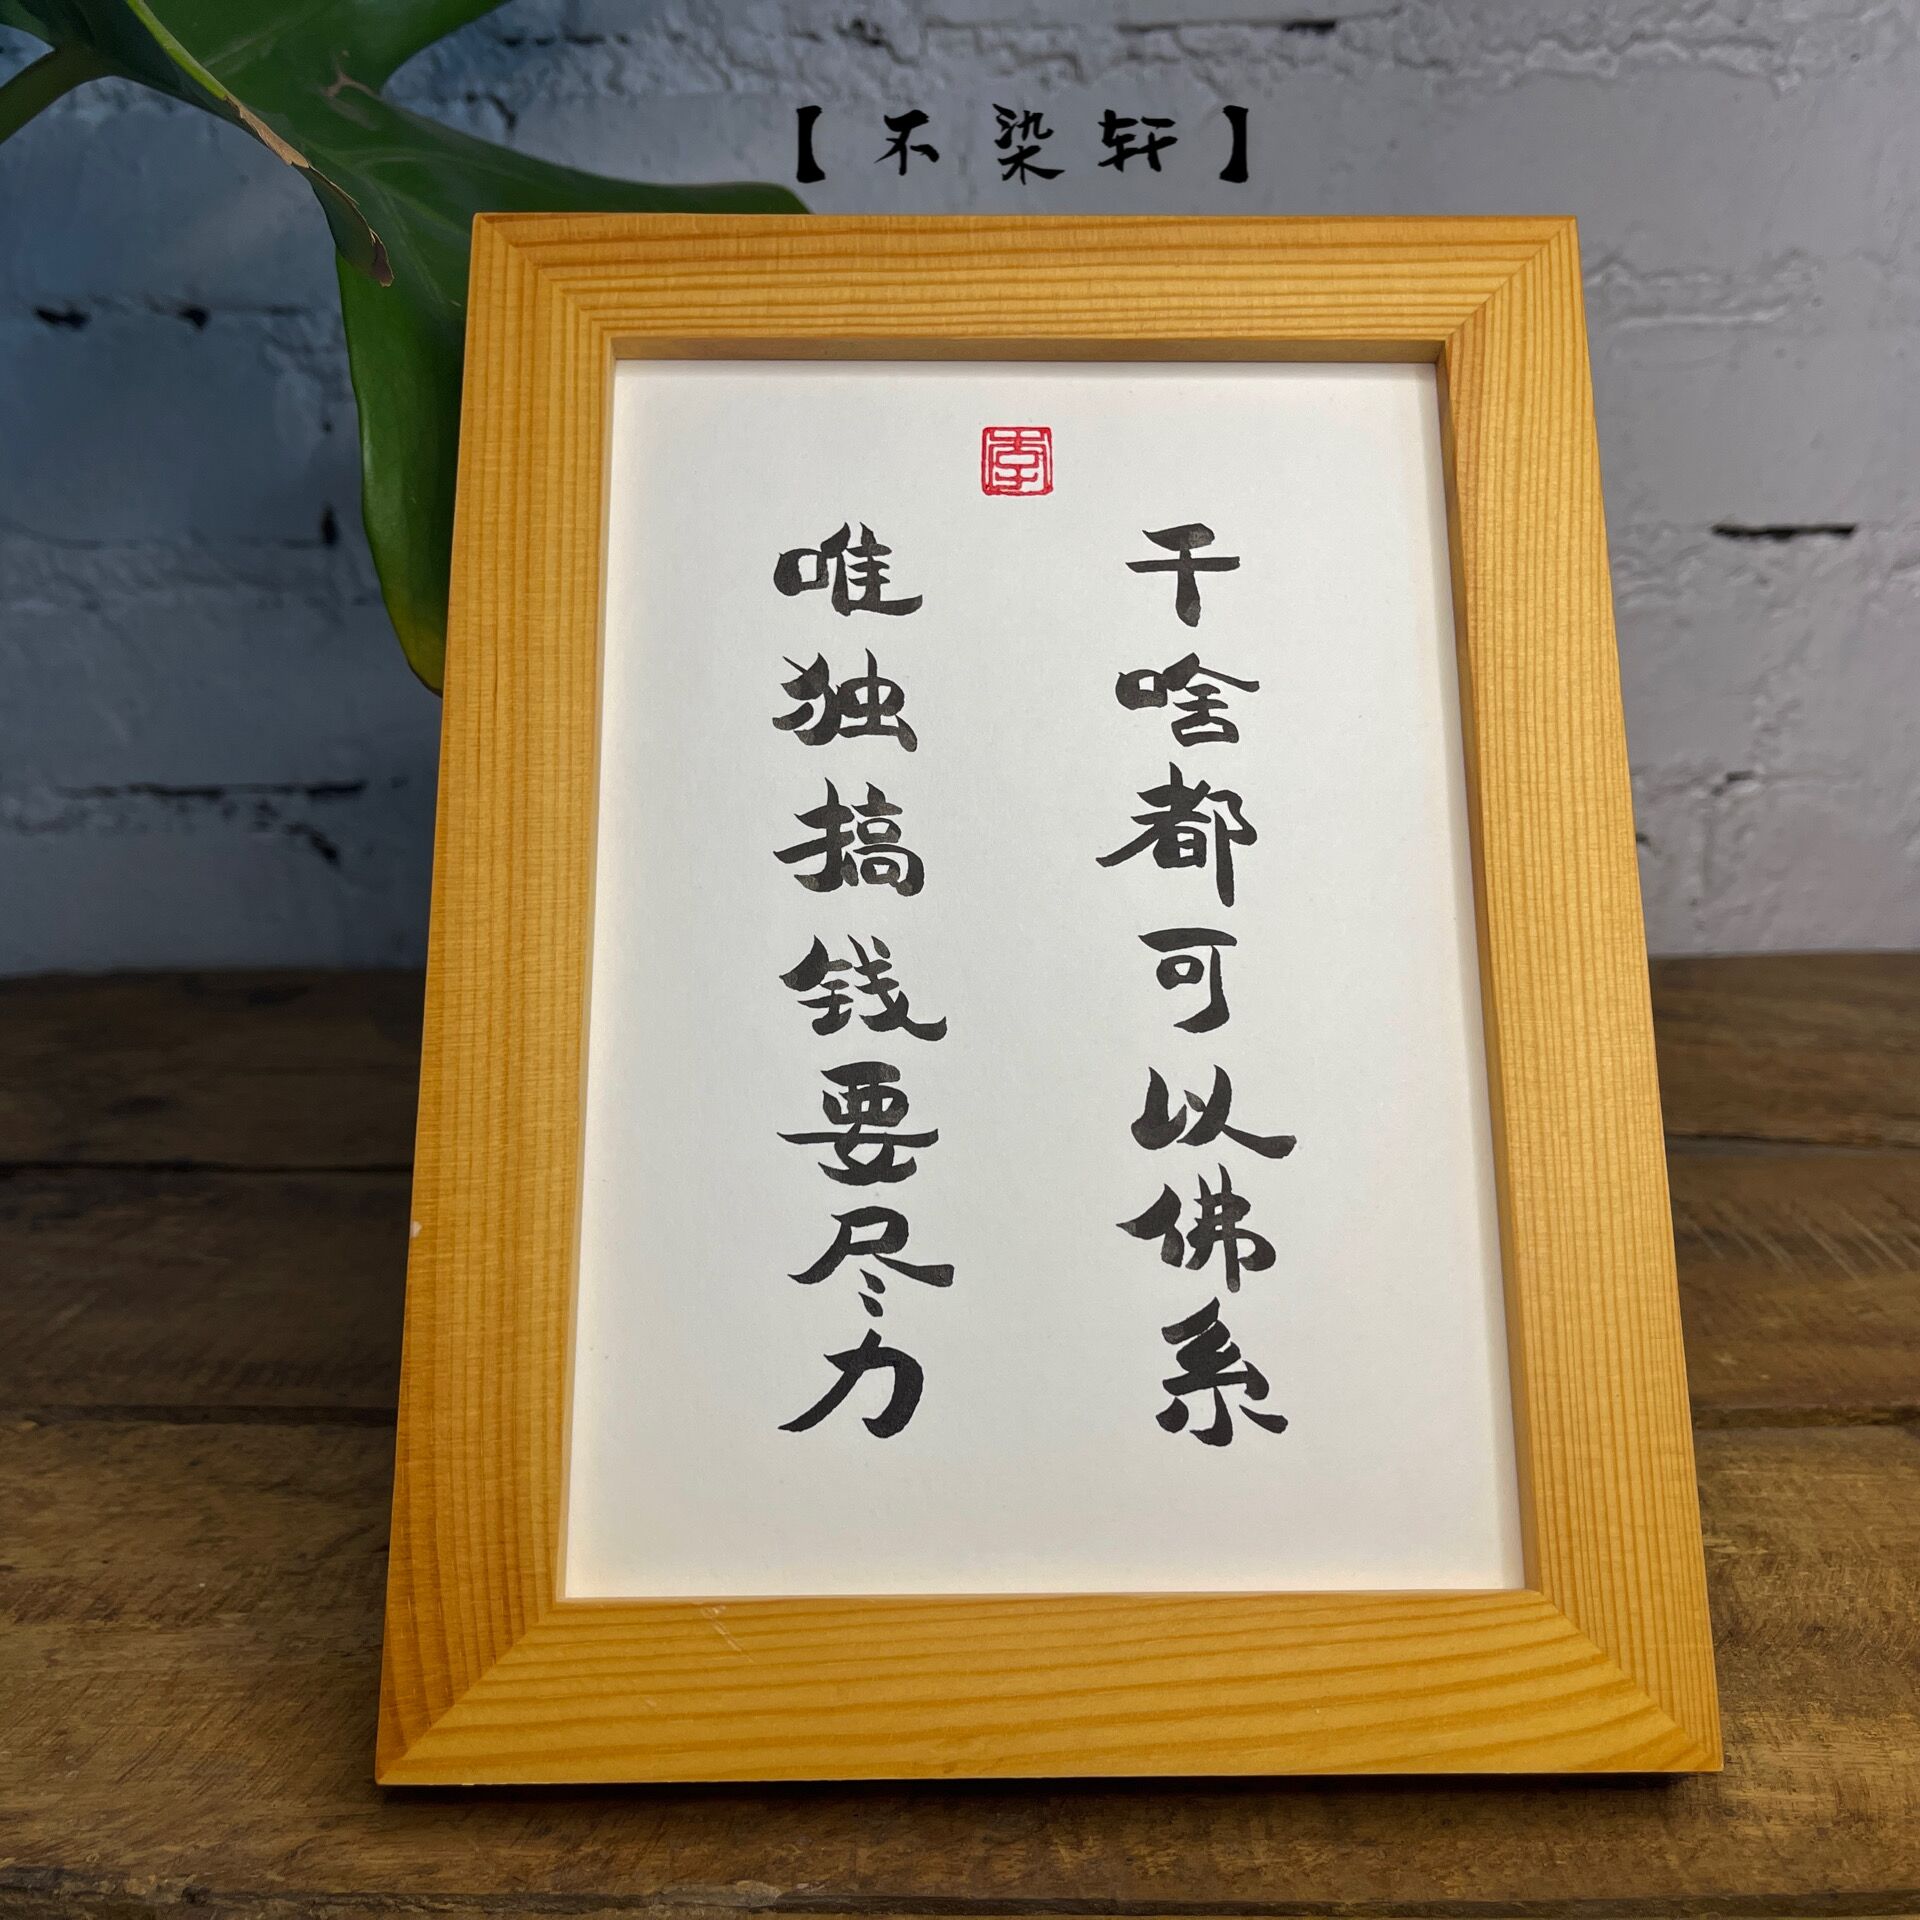 【不染轩】
干啥都可以佛系
唯独搞钱要尽力